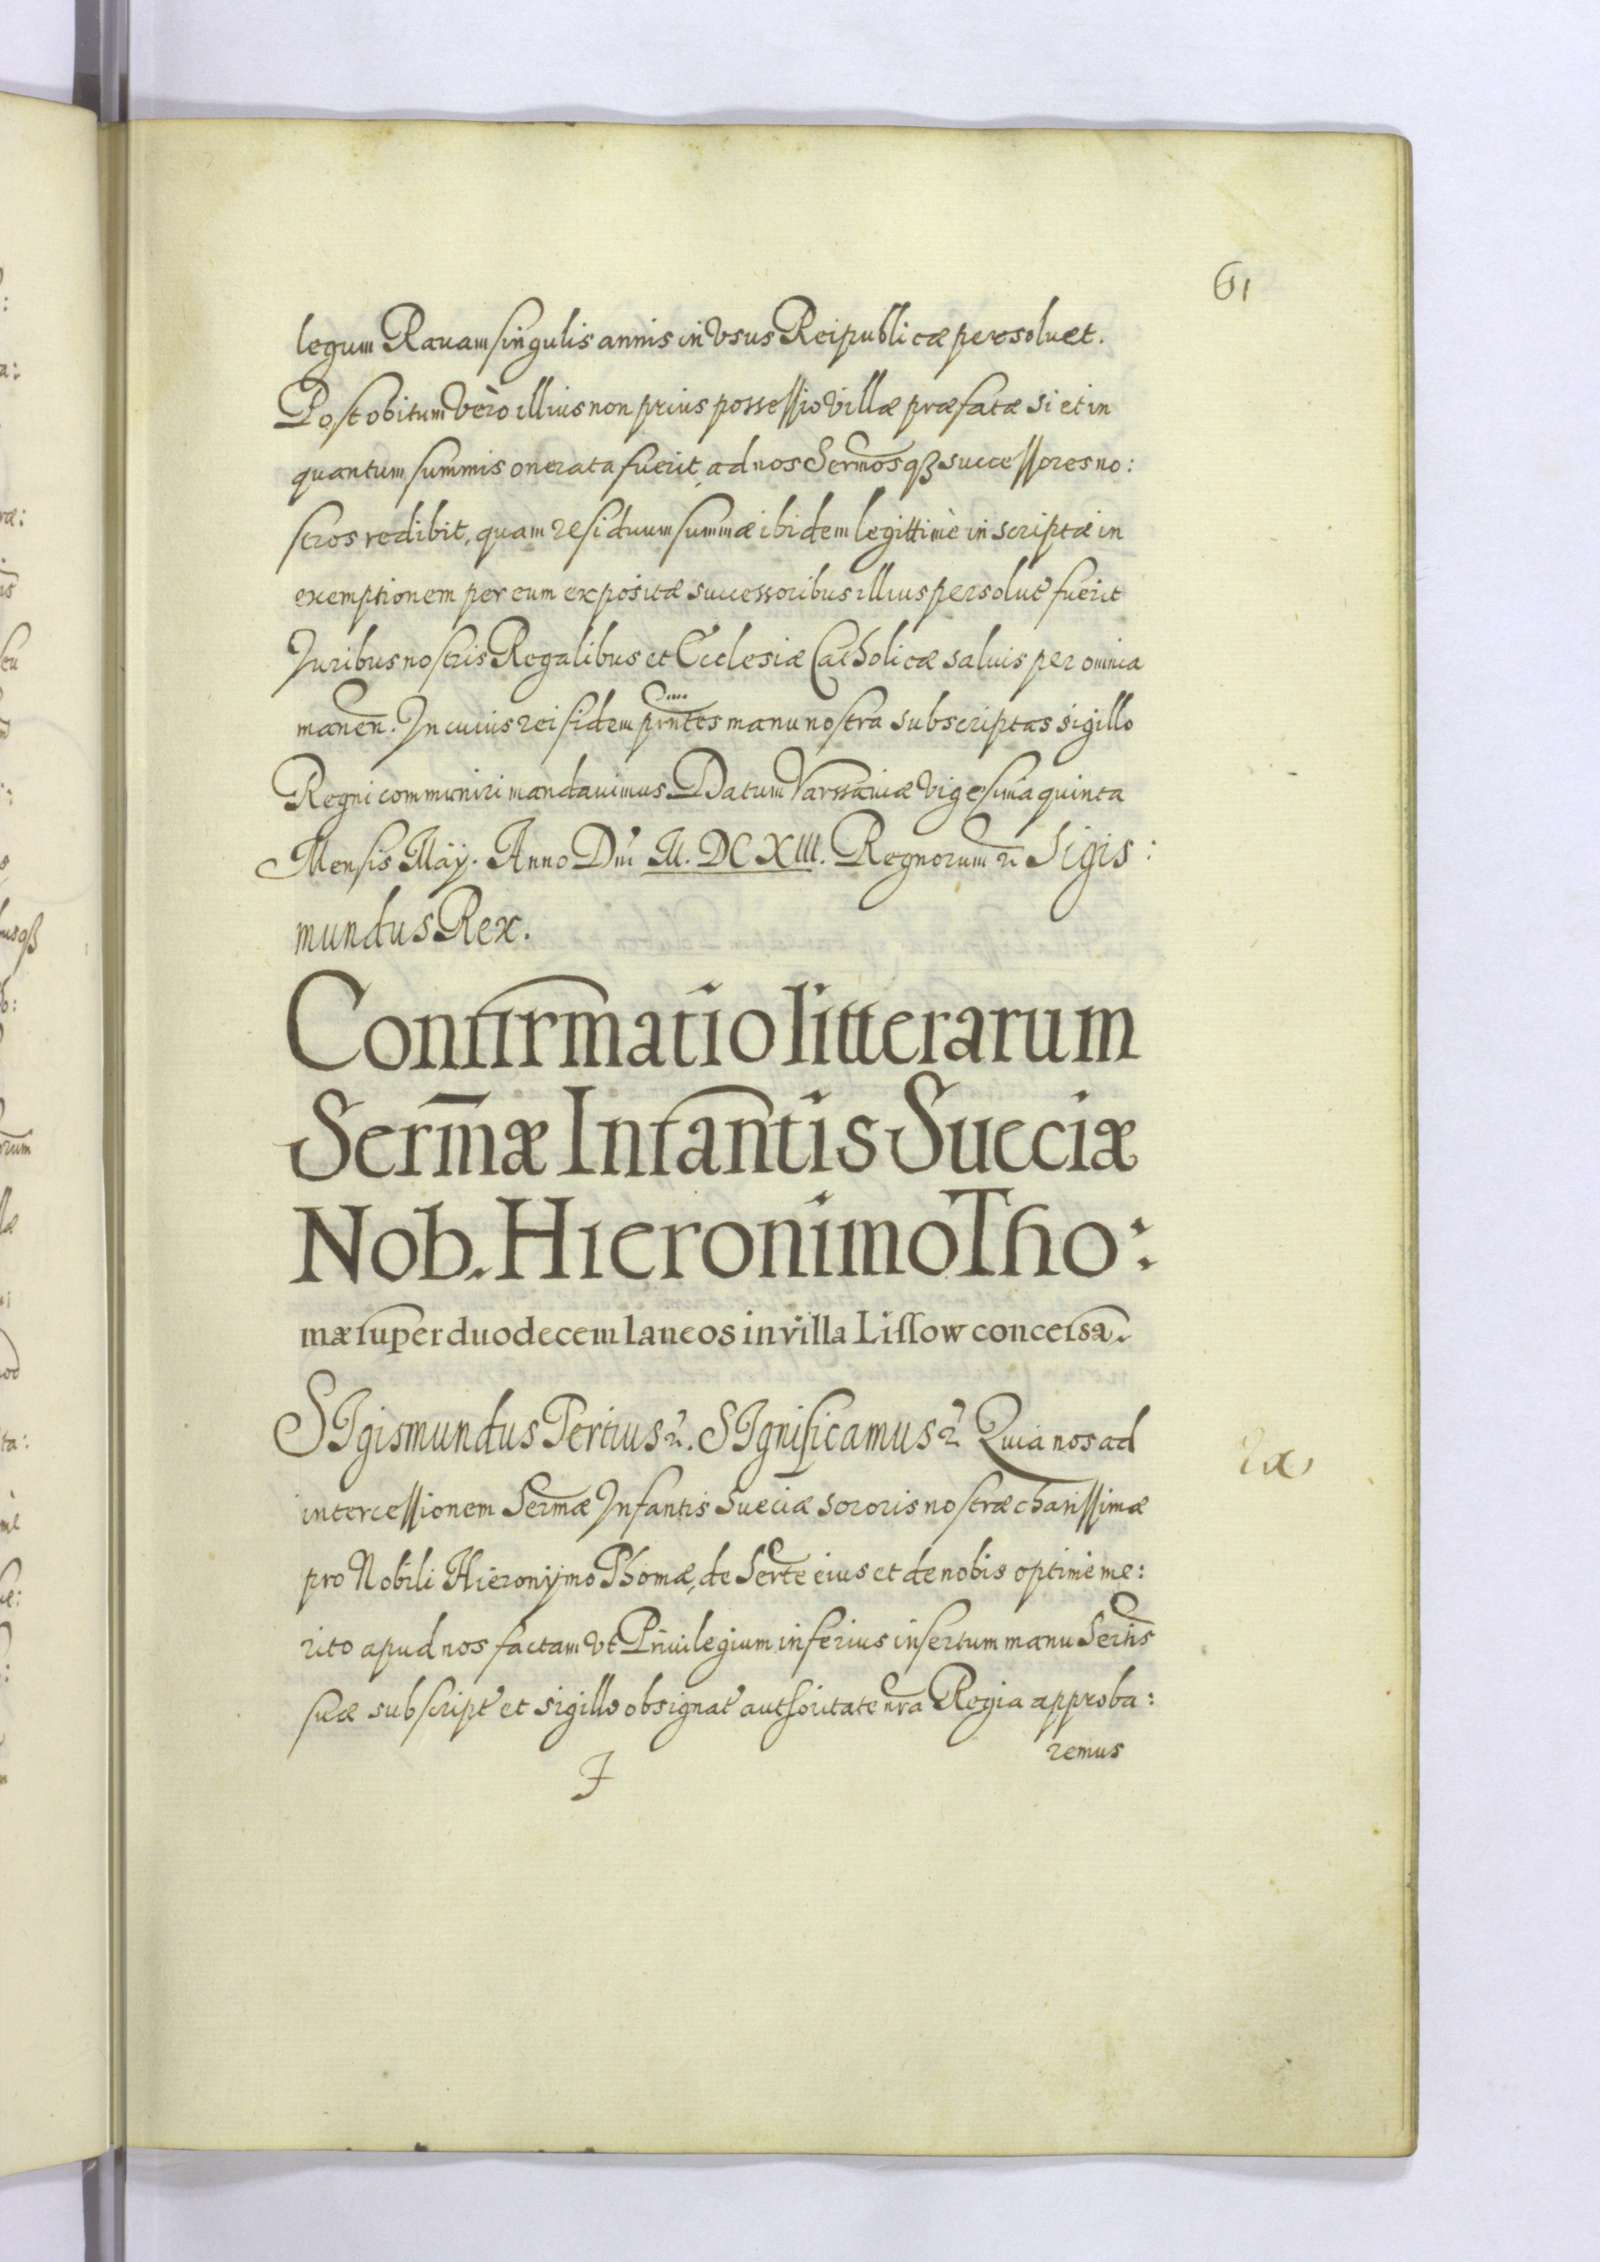 61
legum Rauam singulis annis in Vsus Reipublicæ persoluet.
Post obitum Vèro illius non prius possessio Villæ præfatæ si et in
quantum summis onerata fuerit, ad nos Sermos qȝ successores no:
stros redibit, quam residuum summæ ibidem legittimè inscriptæ in
exemptionem per eum expositæ successoribus illius persolut fuerit
Juribus nostris Regalibus et Ecclesiæ Catholicæ saluis per omnia
manen. In cuius rei fidem pntes manu nostra subscriptas sigillo
Regni communiri mandauimus Datum Varssauiæ Vigesima quinta
Mensis Maÿ. Anno Dni M. DC XIII. Regnorum Sigis:
mundus Rex.
Confirmatio litterarum
Sermæ Infantis Sueciæ
Nob. Hieronimo Tho:
mæ super duodecem laneos in villa Lissow concessa.
SIgismundus Tertius. SIgnificamus Quia nos ad
intercessionem Sermæ Infantis Sueciæ sororis nostræ charissimæ
pro Nobili Hieronymo Thomæ, de Serte eius et de nobis optimè me:
rito apud nos factam Vt Priuilegium inferius insertum manu Sertis
suæ subscript et sigillo obsignat authoritate nra Regia approba:
remus